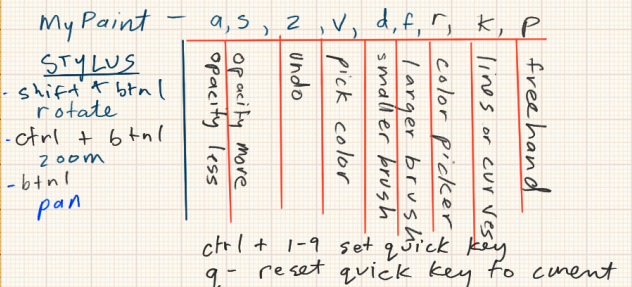 MyPaint - a, s, z, v, d, f, r, k, p
STYLUS
- shift + btn1
rotate
- ctrl + btn1
zoom
- btn1
pan
opacity less
opacity more
undo
pick color
smaller brush
larger brush
color picker
lines or curves
freehand
ctrl + 1-9 set quick key
q - reset quick key to current